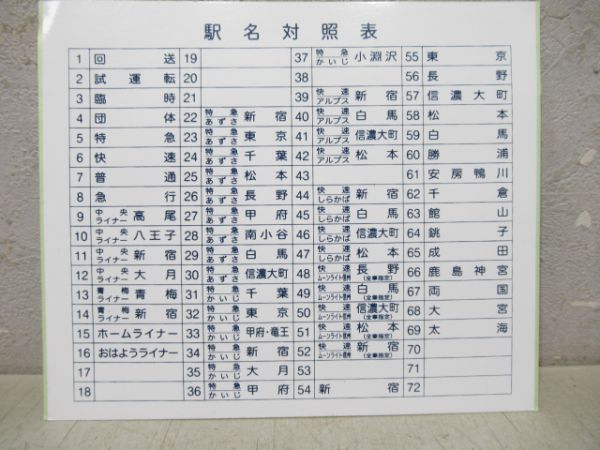 駅名対照表
1 回送
2 試運転
3 臨時
4 団体
5 特急
6 快速
7 普通
8 急行
9 中央ライナー 高尾
10 中央ライナー 八王子
11 中央ライナー 新宿
12 中央ライナー 大月
13 青梅ライナー 青梅
14 青梅ライナー 新宿
15 ホームライナー
16 おはようライナー
17
18
19
20
21
22 特急あずさ 新宿
23 特急あずさ 東京
24 特急あずさ 千葉
25 特急あずさ 松本
26 特急あずさ 長野
27 特急あずさ 甲府
28 特急あずさ 南小谷
29 特急あずさ 白馬
30 特急あずさ 信濃大町
31 特急かいじ 千葉
32 特急かいじ 東京
33 特急かいじ 甲府・竜王
34 特急かいじ 新宿
35 特急かいじ 大月
36 特急かいじ 甲府
37 特急かいじ 小淵沢
38
39 快速アルプス 新宿
40 快速アルプス 白馬
41 快速アルプス 信濃大町
42 快速アルプス 松本
43
44 快速しらかば 新宿
45 快速しらかば 白馬
46 快速しらかば 信濃大町
47 快速しらかば 松本
48 快速ムーンライト信州 長野(全車指定)
49 快速ムーンライト信州 白馬(全車指定)
50 快速ムーンライト信州 信濃大町(全車指定)
51 快速ムーンライト信州 松本(全車指定)
52 快速ムーンライト信州 新宿(全車指定)
53
54 新宿
55 東京
56 長野
57 信濃大町
58 松本
59 白馬
60 勝浦
61 安房鴨川
62 千倉
63 館山
64 銚子
65 成田
66 鹿島神宮
67 両国
68 大宮
69 大海
70
71
72